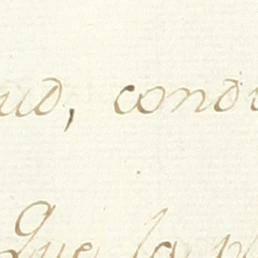 ud, condu
Que la p